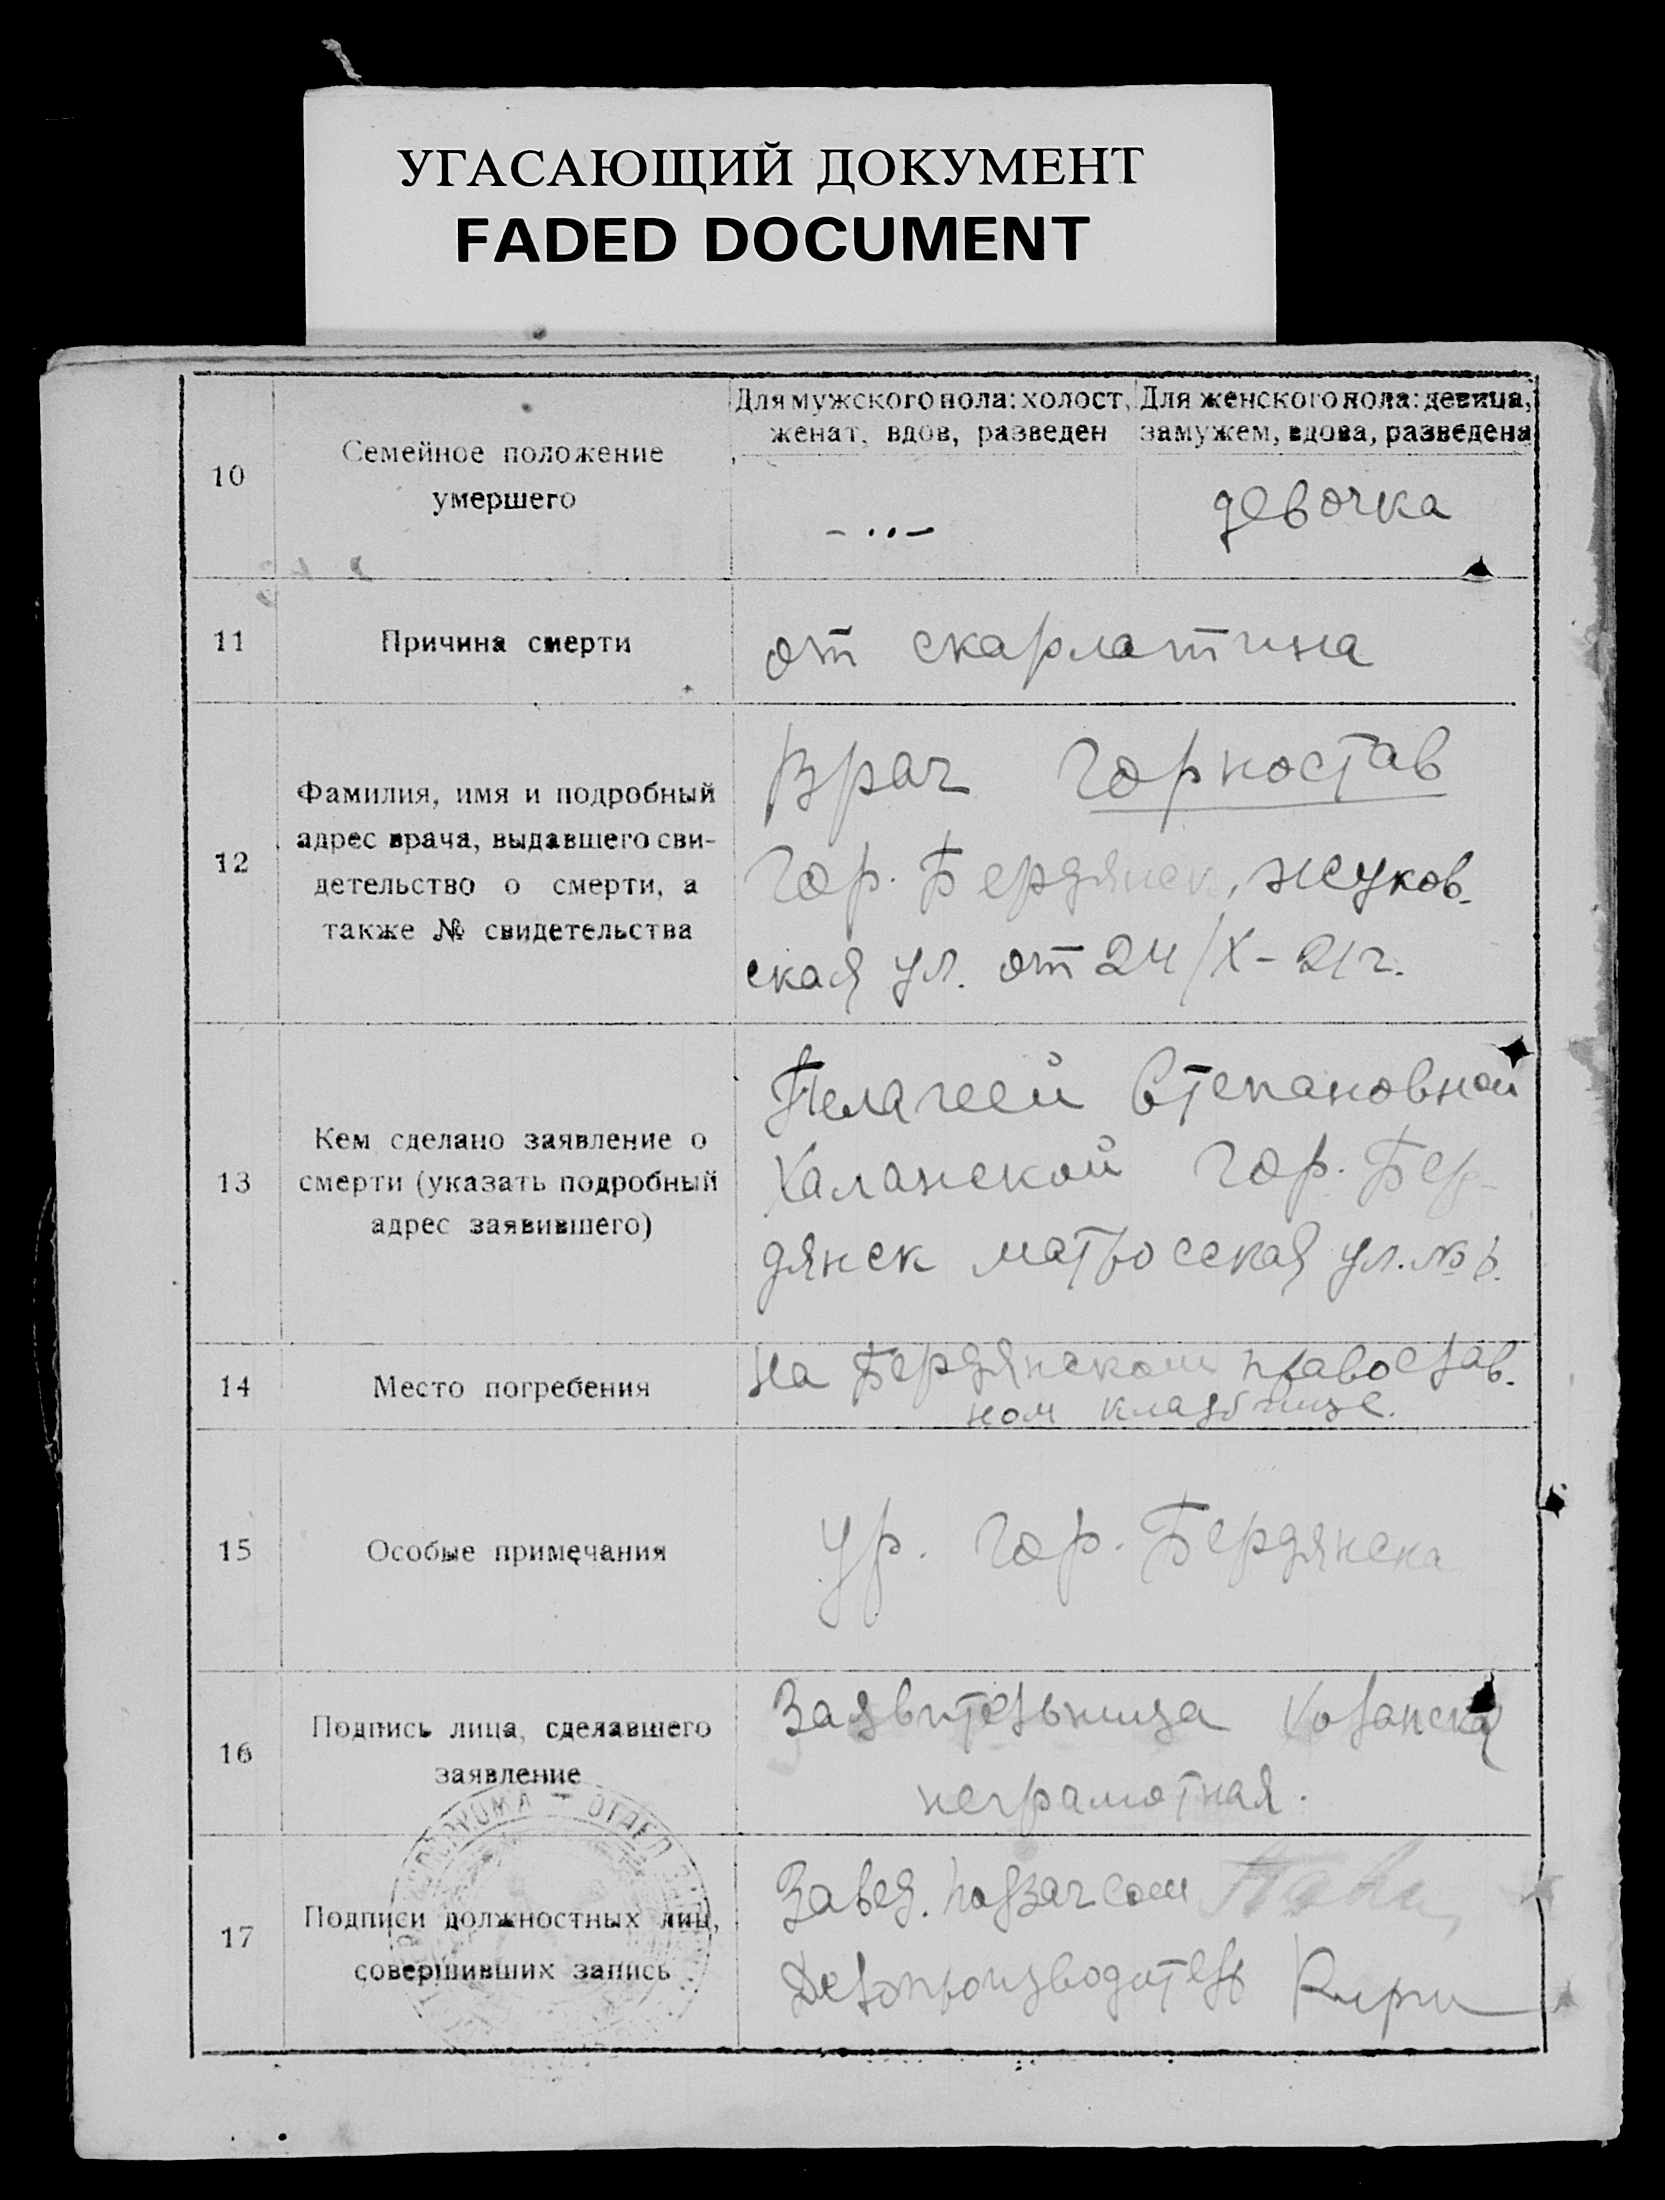 УГАСАЮЩИЙ ДОКУМЕНТ
FADED DOCUMENT
10
Семейное положение
умершего
Для мужского пола: холост,
женат, вдов, разведен
Для женского пола: девица,
замужем, вдова, разведена
девочка
11
Причина смерти
от скарлатина
12
Фамилия, имя и подробный
адрес врача, выдавшего сви-
детельство о смерти, а
также № свидетельства
Врач Горностав
Гор. Бердянск, Жуков-
ская ул. от 24/X-21г.
13
Кем сделано заявление о
смерти (указать подробный
адрес заявившего)
Пелагеей Степановной
Халанской Гор. Бер-
дянск матросская ул. №
14
Место погребения
На Бердянском православ-
ном кладбище.
15
Особые примечания
Ур. гор. Бердянска
16
Подпись лица, сделавшего
заявление
Заявительница
неграмотная.
17
Подписи должностных лиц,
совершивших запись
Завед. подзагсом
Делопроизводитель